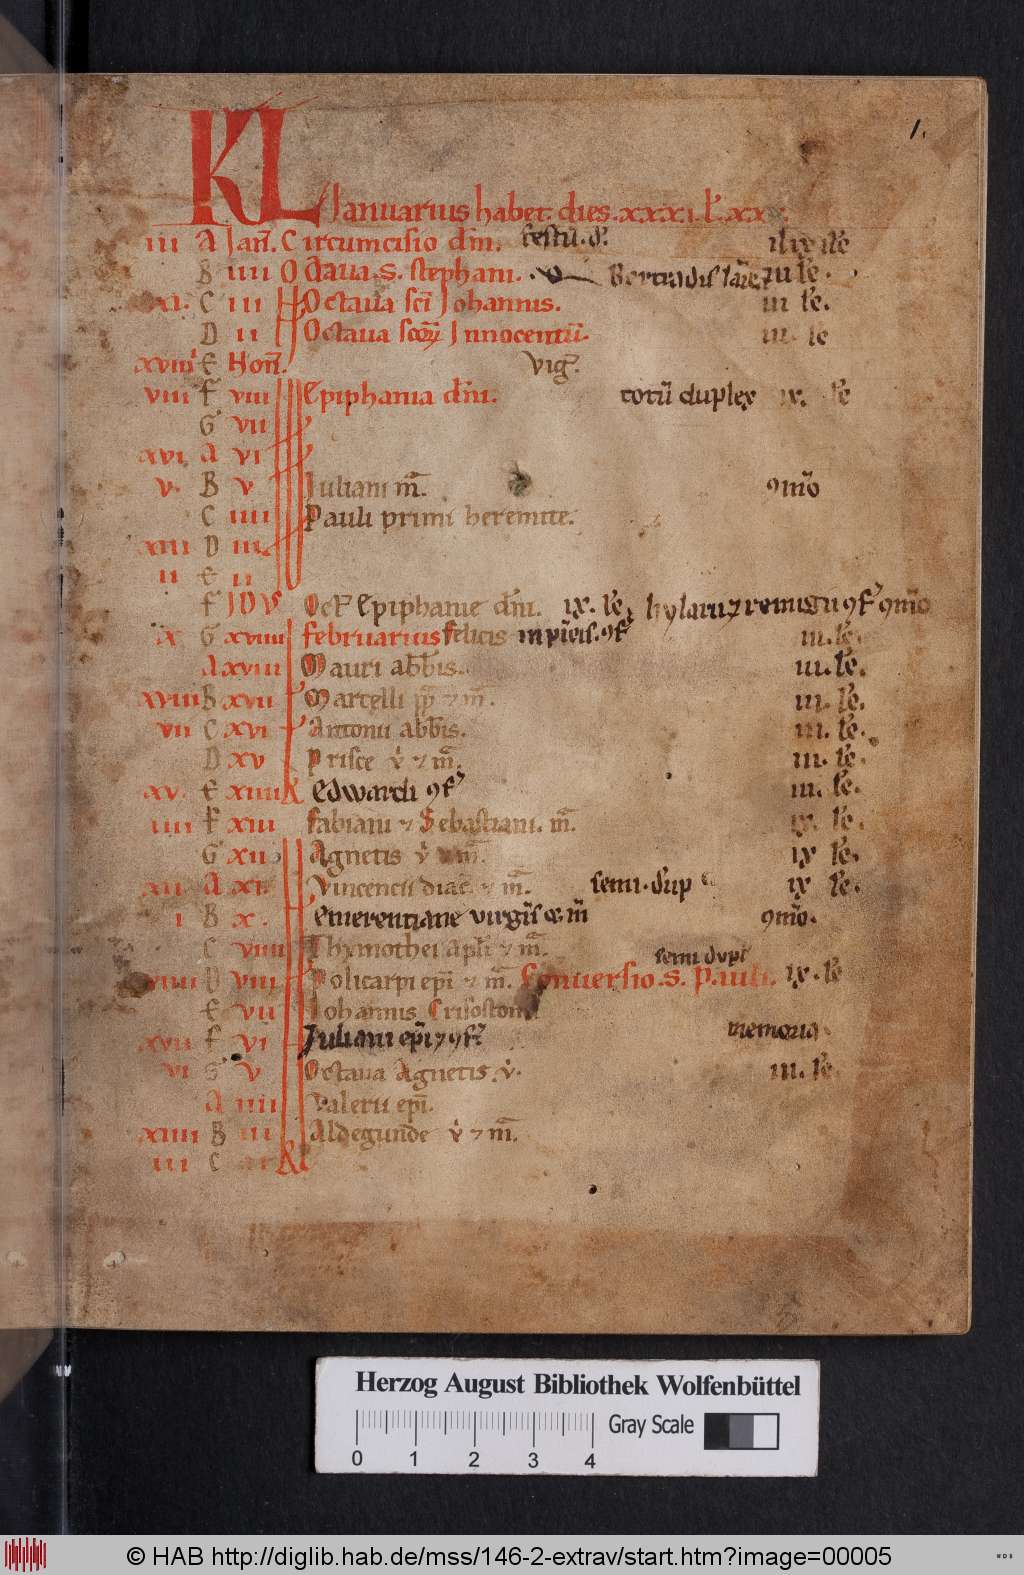 1.
KL Ianuarius habet. dies. xxxi. l. xxx
iii A Jan. Circumcisio dni. festu. d.
B iiii Octaua. S. stephani. le.
xi. C iii Octaua sci Johannis. iii le.
D ii Octaua scoꝝ Innocentu. iii. le
xviiii E Non. vig.
viii F viii Epiphania dni. totu duplex ix. le
G vii
xvi A vi
v. B v Iuliani m. 9mo
C iiii Pauli primi heremite.
xiii D iii.
ii E ii
F IDUS Oct Epiphanie dni. ix. le hylarii ⁊ remigii 9f 9mo
x G xviiii februarius felicis in picis. 9f iii. le.
A xviii Mauri abbis. iii. le.
xviii B xvii Marcelli pp ⁊ m. iii. le.
vii C xvi Antonii abbis. iii. le.
D xv Prisce v ⁊ m. iii. le.
xv. E xiiii Edwardi 9f iii. le.
iiii F xiii fabiani ⁊ Sebastiani. m. ix. le.
G xii Agnetis v ⁊ m. ix le.
xii A xi Vincencii diac ⁊ m. semi. dup ix le.
i B x. Emerentiane uirgis & m 9mo.
C viiii Thymothei apli ⁊ m.
viiii D viii Policarpi epi ⁊ m. Conuersio. S. Pauli. semi dupl ix. le
E vii Iohannis Crisostomi
xvii F vi Juliani epi ⁊ 9f. memoria
vi G v Octaua Agnetis. v. iii. le.
A iiii Valerii epi.
xiiii B iii Aldegunde v ⁊ m.
iii C
Herzog August Bibliothek Wolfenbüttel
Gray Scale
0 1 2 3 4
© HAB http://diglib.hab.de/mss/146-2-extrav/start.htm?image=00005